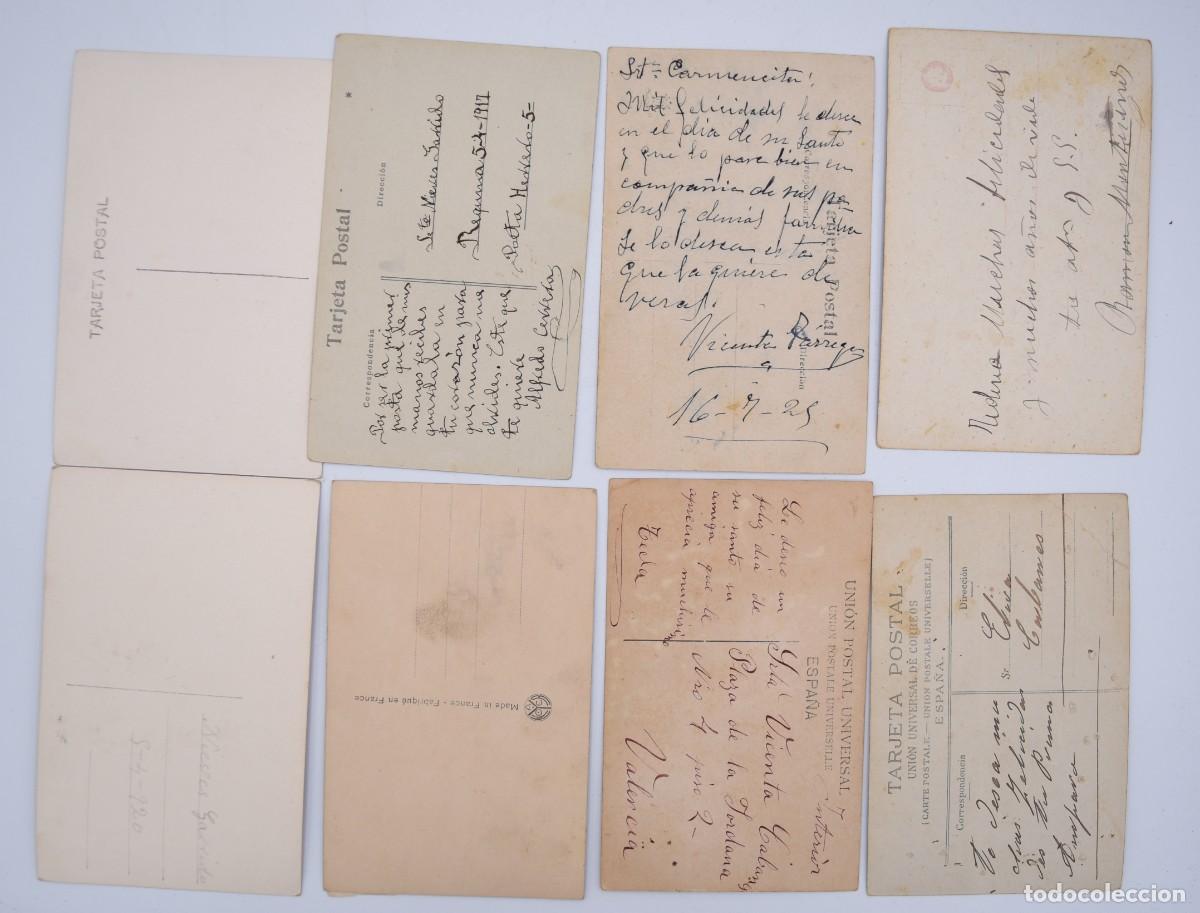 TARJETA POSTAL
*
Tarjeta Postal
Correspondencia
Dirección
Por ser la primer
posta que de mis
manos recibes
guardala en
tu corazón para
que nunca me
olvides. Este que
te quiere
Alfredo Cervera
Nieves Garrido
Requena 5-4-1917
Poeta Herrero-5-
Srta Carmencita!
Mil felicidades le desea
en el dia de su Santo
y que lo pase bien en
compañia de sus pa-
dres y demás familia
se lo desea esta
que la quiere de
veras.
Vicenta Párraga
16-7-25
Tarjeta Postal
Correspondencia
Dirección
Muchas felicidades
y muchos años de vida
S.S.
Ramon
Nieves Garrido
5-4-920
Made in France - Fabriqué en France
UNIÓN POSTAL UNIVERSAL
UNION POSTALE UNIVERSELLE
ESPAÑA
Le deseo un
feliz dia de
su santo su
amiga que le
aprecia muchisimo
Tecla
Interior
Srta Vicenta
Plaza de la Jordana
Nro 4 piso 2-
Valencia
TARJETA POSTAL
UNIÓN UNIVERSAL DE CORREOS
(CARTE POSTALE.—UNION POSTALE UNIVERSELLE)
ESPAÑA.
Correspondencia
Dirección
Te desea mu
chas felicida
des tu Prima
Amparo
Sr.
Elisa
Cabanes
todocoleccion